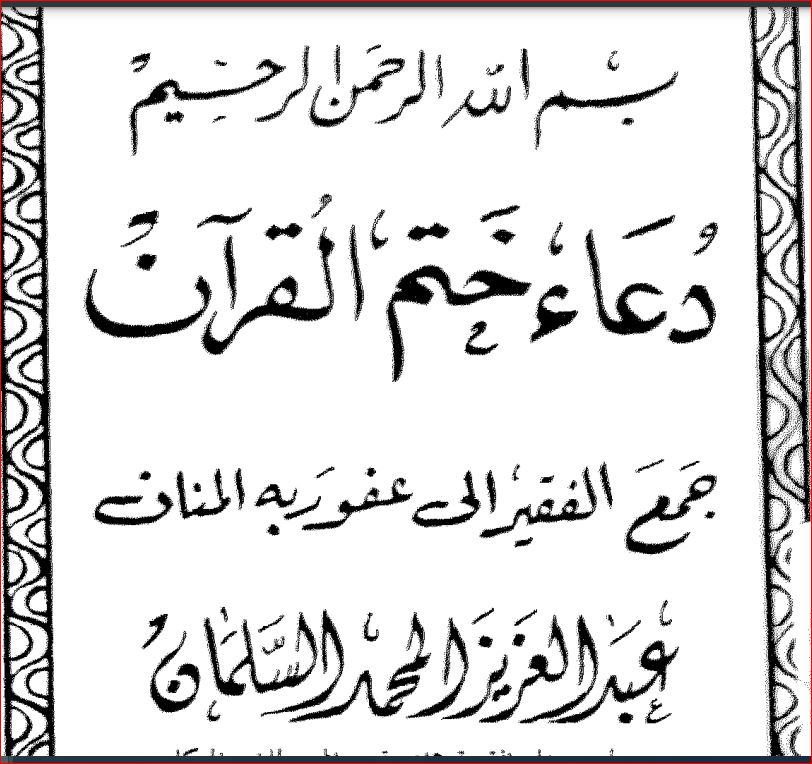 بسم الله الرحمن الرحيم
دُعَاء خَتْم القُرآن
جمَعَ الفقير إلى عفو رَبه المنان
عبد العَزيز المحمد السَّلمَان